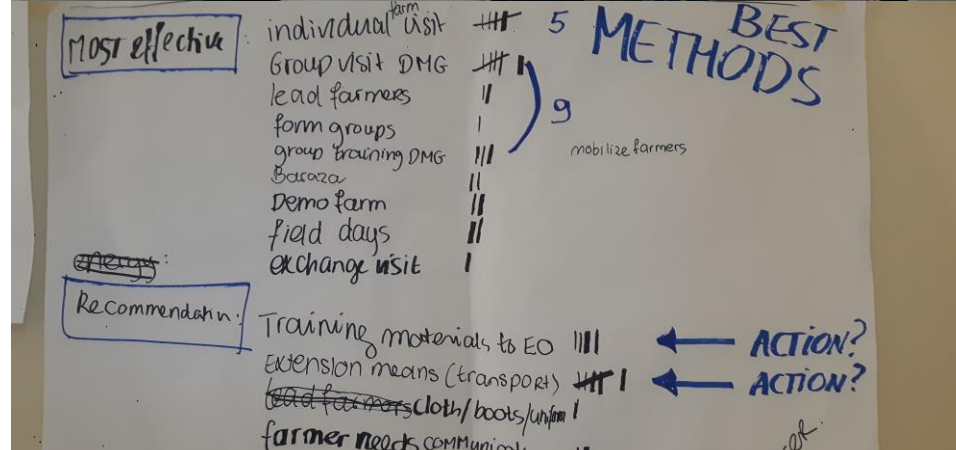 BEST
METHODS
Most effective : individual farm visit 5
Group visit DMG
lead farmers
form groups 9
group training DMG mobilize farmers
Baraza
Demo farm
field days
exchange visit
energy:
Recommendatin:
Training materials to EO ACTION?
Extension means (transport) ACTION?
lead farmers cloth/boots/uniform
farmer needs